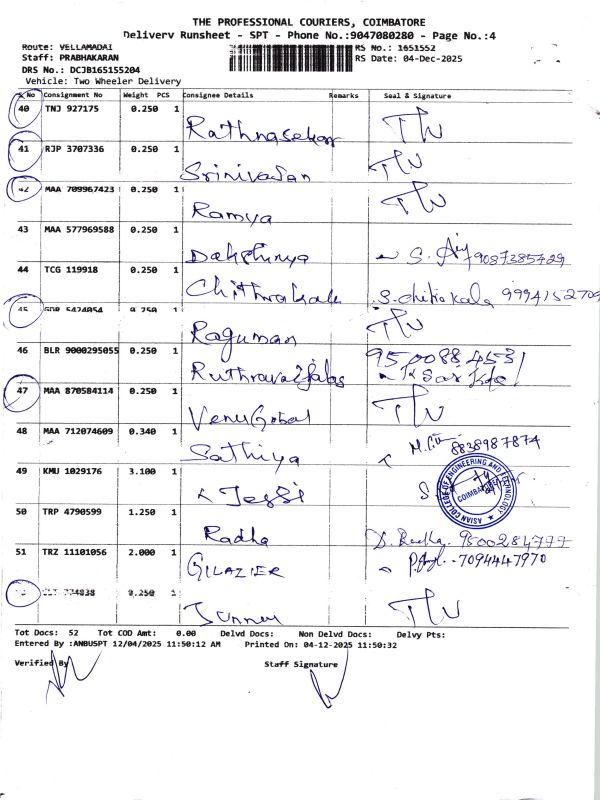 THE PROFESSIONAL COURIERS, COIMBATORE
Delivery Runsheet - SPT - Phone No.:9047080280 - Page No.:4
Route: VELLAMADAI RS No.: 1651552
Staff: PRABHAKARAN RS Date: 04-Dec-2025
DRS No.: DCJB165155204
Vehicle: Two Wheeler Delivery
No Consignment No Weight PCS Consignee Details Remarks Seal & Signature
40 TNJ 927175 0.250 1
Rathnasekar
41 RJP 3707336 0.250 1
Srinivasan
42 MAA 709967423 0.250 1
Ramya
43 MAA 577969588 0.250 1
Dakshinya S. 9087385729
44 TCG 119918 0.250 1
Chithrakala S. chitrakala 9994152709
45 5424054 0.250 1
Raguman
46 BLR 9000295055 0.250 1 9500884531
47 MAA 870584114 0.250 1
VenuGobal
48 MAA 712074609 0.340 1 8838987874
Sathiya
49 KMU 1029176 3.100 1
Jessi
ASIAN COLLEGE OF ENGINEERING AND TECHNOLOGY
COIMBATORE
50 TRP 4790599 1.250 1
Radha 9500284777
51 TRZ 11101056 2.000 1 7094447970
GILAZIER
0.250 1
Tot Docs: 52 Tot COD Amt: 0.00 Delvd Docs: Non Delvd Docs: Delvy Pts:
Entered By :ANBUSPT 12/04/2025 11:50:12 AM Printed On: 04-12-2025 11:50:32
Verified By Staff Signature